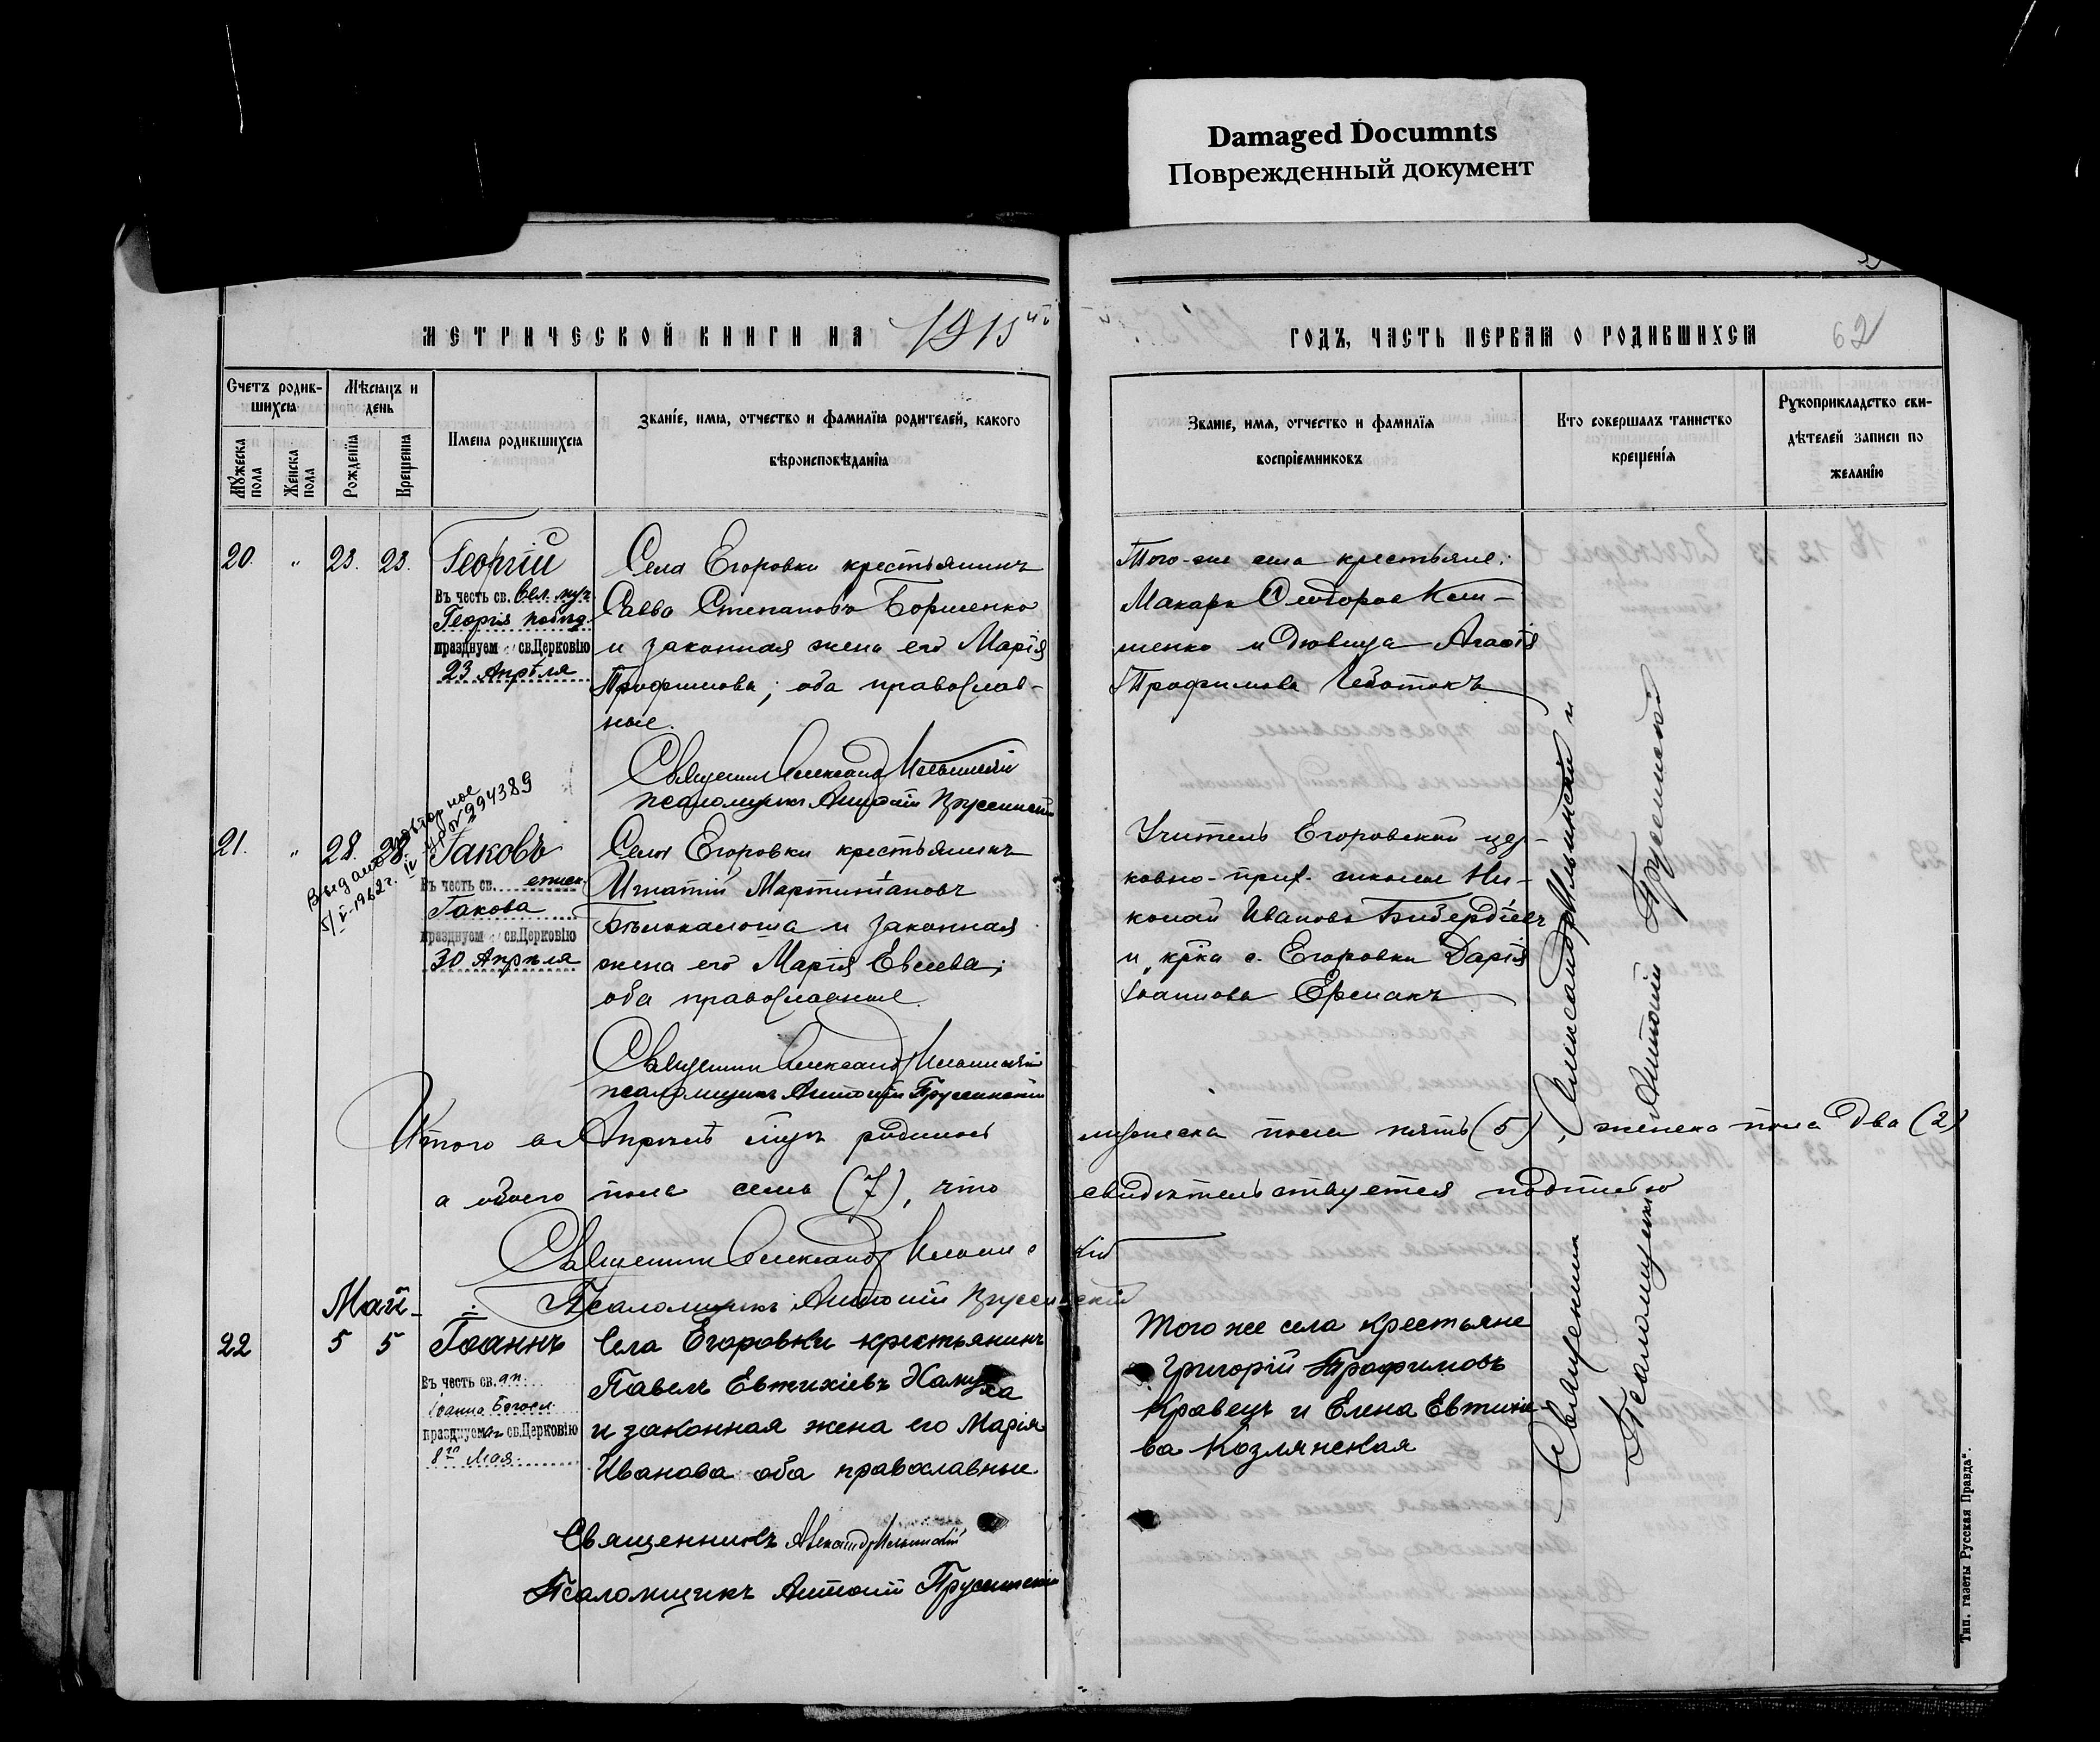 Damaged Documnts
Поврежденный документ
МЕТРИЧЕСКОЙ КНИГИ НА 1915ый
ГОДЪ, ЧАСТЬ ПЕРВАЯ О РОДИВШИХСЯ
62
Счетъ родив-
шихся
Мужеска пола
Женска пола
Мѣсяцъ и
день
Рожденїя
Крещенїя
Имена родившихся
Званїе, имя, отчество и фамилїя родителей, какого
вѣроисповѣданїя
Званїе, имя, отчество и фамилїя
воспрїемниковъ
Кто совершалъ таинство
крещенїя
Рукоприкладство сви-
дѣтелей записи по
желанїю
20. " 23. 23. Георгій
Въ честь св. Вел. муч.
Георгія побѣд.
празднуем св.Церковію
23 Апрѣля
Села Егоровки крестьянинъ
Савва Степановъ
и законная жена его Марія
Трофимова; оба православ-
ные.
Священник Александр Ильинскій
псаломщикъ Антоній Прусинскій
Того-же села крестьяне:
Макаръ
и дѣвица Агафія
Трофимова Чеботокъ
Выдано повторное
5/V-1962г.
21. " 28. 28. Іаковъ
Въ честь св. апост.
Іакова
празднуем св.Церковію
30 Апрѣля
Села Егоровки крестьянинъ
Игнатій Мартиніановъ
и законная
жена его Марія Евсеева;
оба православные.
Священник Александр Ильинскій
псаломщикъ Антоній Прусинскій
Учитель Егоровской цер-
ковно-прих. школы Ни-
колай Ивановъ
и кр-ка с. Егоровки Дарія
Іоаннова Ермакъ
Итого въ Апрѣлѣ мцѣ родилось мужеска пола пять (5), женска пола два (2)
а обоего пола семь (7), что свидѣтельствуется подписью
Священник Александр Ильинскій
Псаломщикъ Антоній Прусинскій
Май
22 5 5 Іоаннъ
Въ честь св. ап.
Іоанна Богосл.
празднуем св.Церковію
8го Мая.
Села Егоровки крестьянинъ
Павелъ Евтихіевъ
и законная жена его Марія
Иванова оба православные.
Священникъ Александр Ильинскій
Псаломщикъ Антоній Прусинскій
Того же села крестьяне
Григорій Трофимовъ
Кравецъ и Елена Евтихіе-
ва Козлянская
Священник Александр Ильинскій и
Псаломщикъ Антоній Прусинскій
Тип. газеты „Русская Правда“.